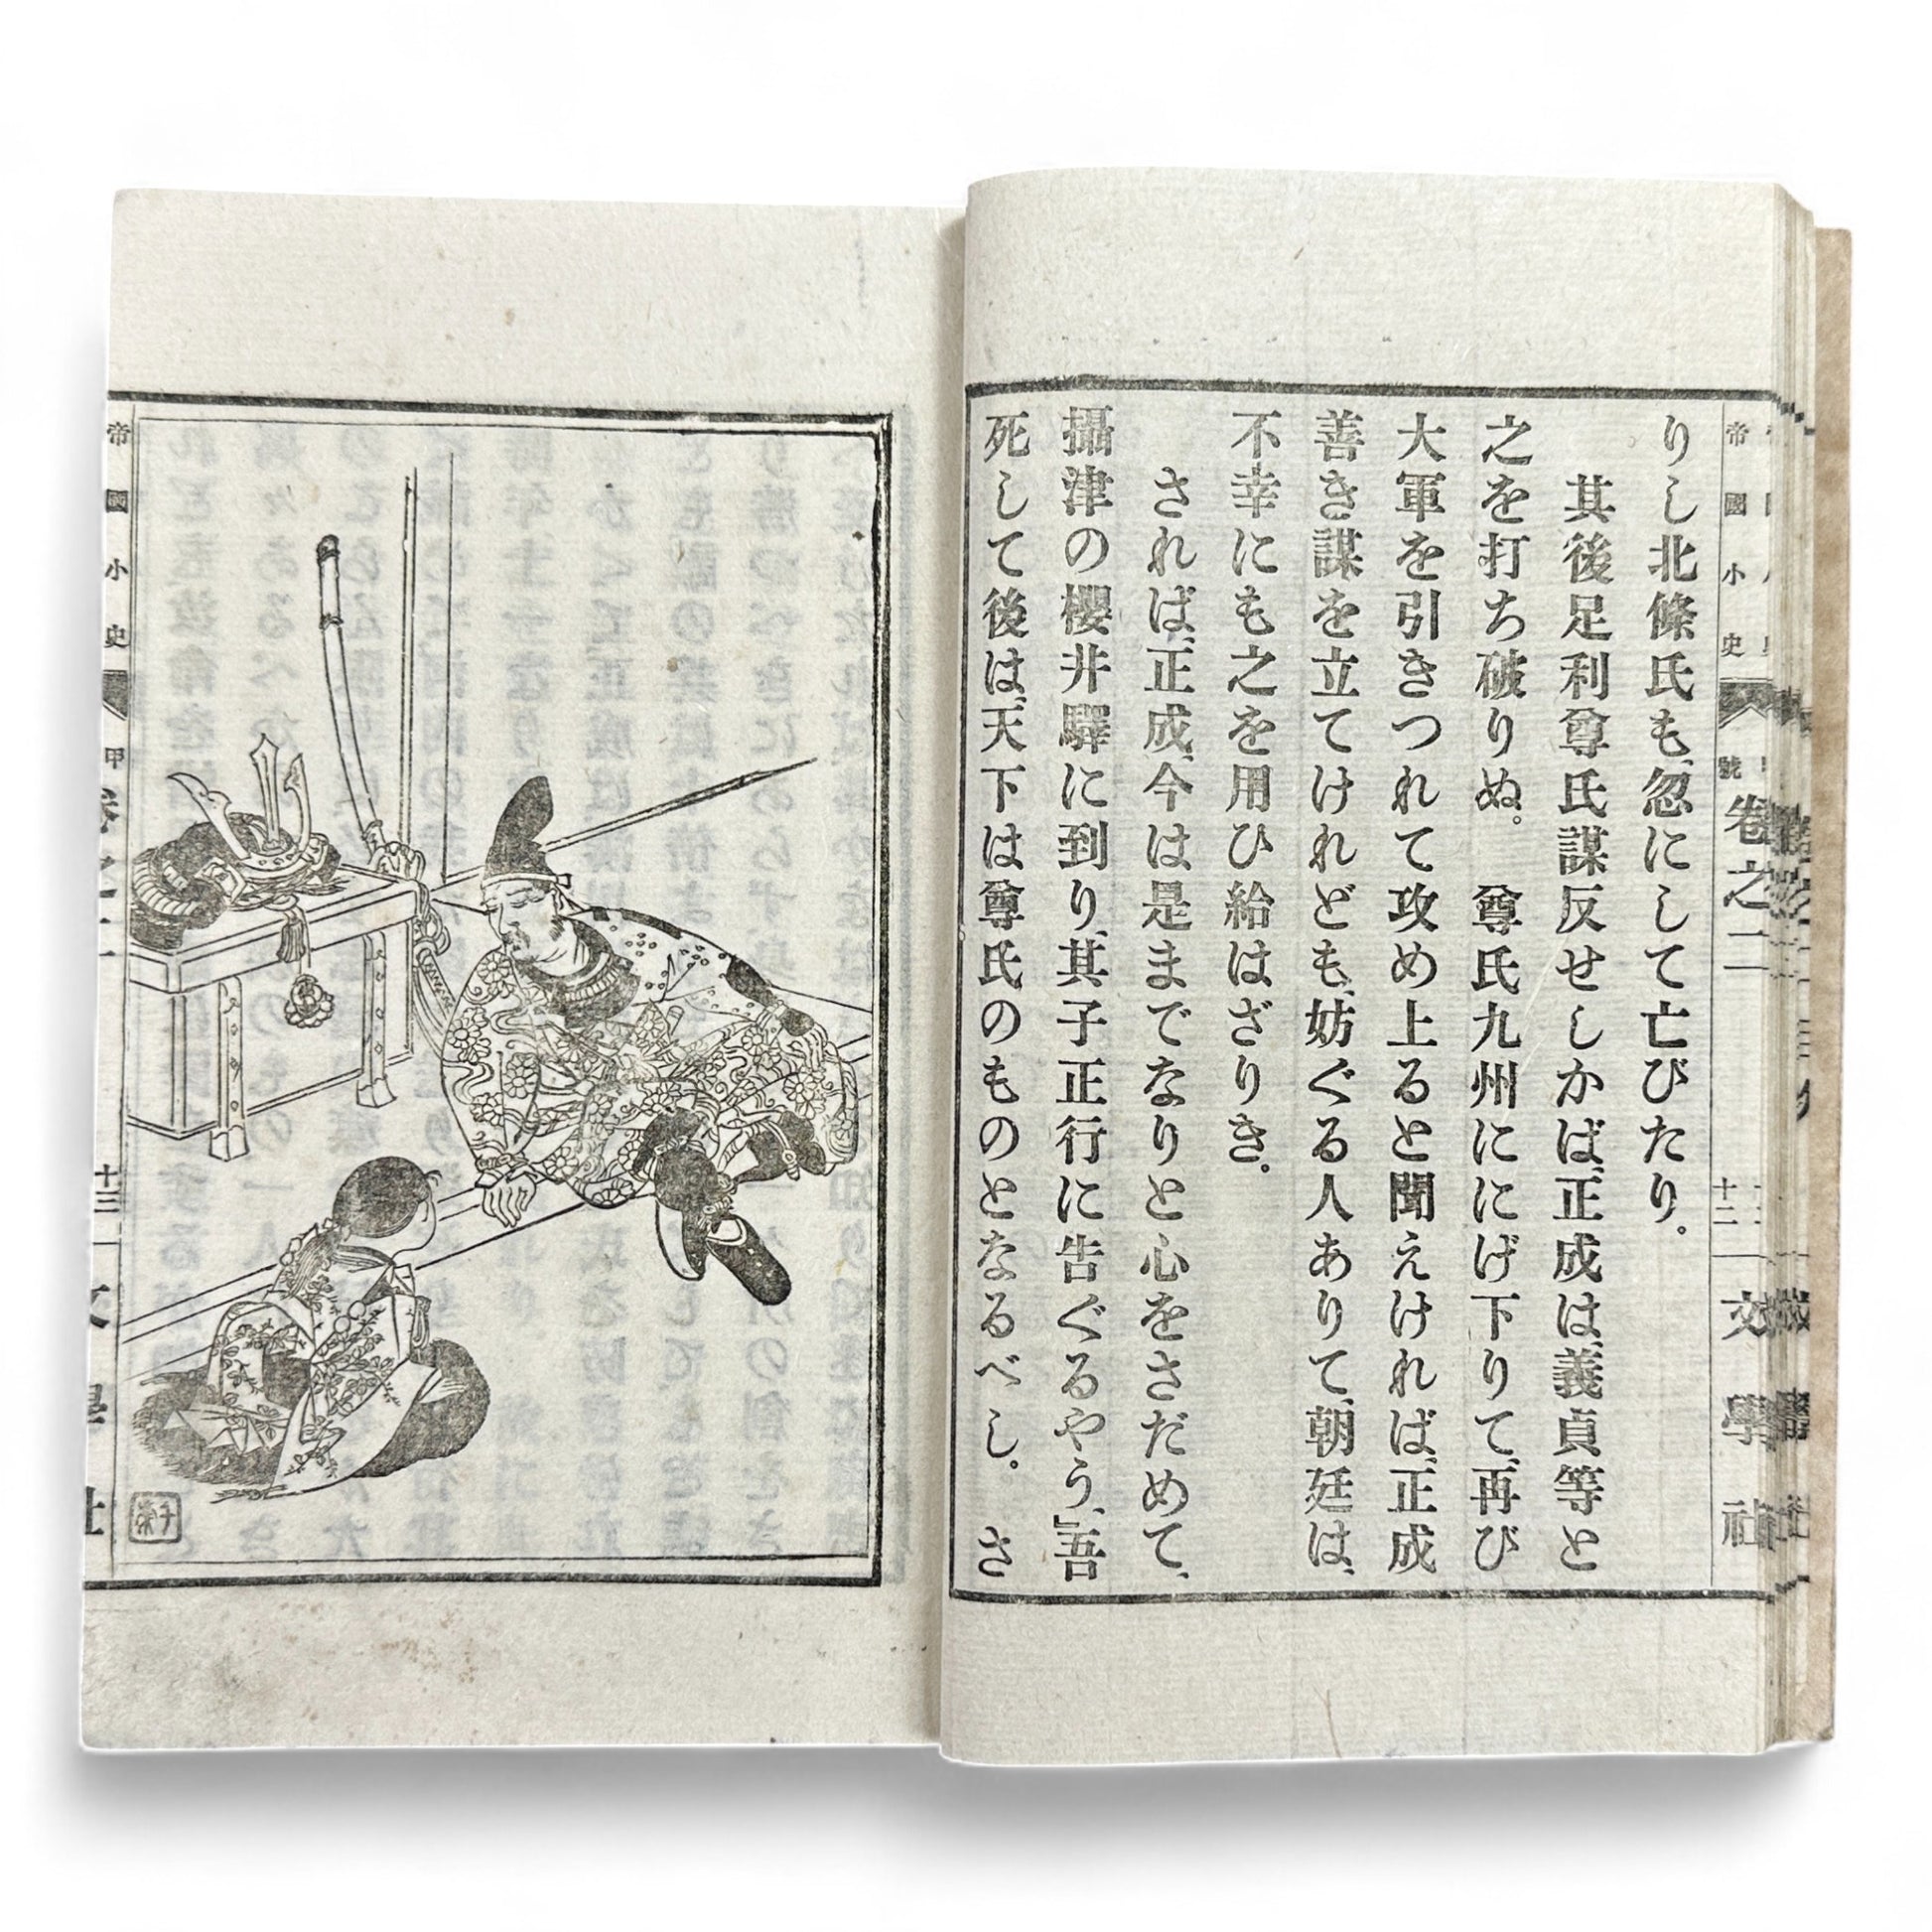 帝國小史
甲號
卷之二
十二
文學社
りし北條氏も、忽にして亡びたり。
其後足利尊氏謀反せしかば、正成は、義貞等と
之を打ち破りぬ。 尊氏九州ににげ下りて、再び
大軍を引きつれて攻め上ると聞えければ、正成
善き謀を立てけれども、妨ぐる人ありて、朝廷は、
不幸にも之を用ひ給はざりき。
されば、正成、今は是までなりと心をさだめて、
攝津の櫻井驛に到り、其子正行に告ぐるやう、「吾
死して後は、天下は尊氏のものとなるべし。 さ
帝國小史
甲
十三